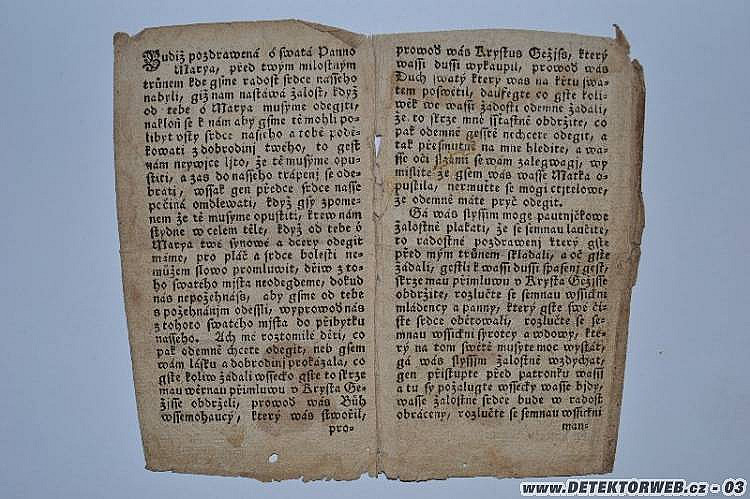 Budiž pozdrawená ó swatá Panno
Marya, před twým milostným
trůnem kde gsme radost srdce nasseho
nabyli, giž nam nastáwá žalost, když
od tebe ó Marya musýme odegjti,
nakloň se k nám aby gsme tě mohli po-
libyt vsty srdce nasseho a tobě podě-
kowati z dobrodinj tweho, to gest
nám neywjce ljto, že tě musýme opu-
stiti, a zas do nasseho trápenj se ode-
brati, wssak gen předce srdce nasse
počjná omdlewati, když gsy zpome-
nem že tě musýme opustiti, krew nám
stydne w celem těle, když od tebe ó
Marya twé synowé a dcery odegit
máme, pro pláč a srdce bolesti ne-
můžem slowo promluwit, dřiw z to-
ho swateho mjsta neodegdeme, dokud
nás nepožehnáss, aby gsme od tebe
s požehnánjm odessli, wyprowoď nás
z tohoto swateho mjsta do přibytku
nasseho. Ach mé roztomilé děti, co
pak odemně chcete odegit, neb gsem
wám lásku a dobrodinj prokázala, co
gste koliw žádali wssecko gste to skrze
mau wěrnau přimluwu v Krysta Ge-
žjsse obdrželi, prowoď wás Bůh
wssemohaucý, který wás stwořil,
pro-
prowoď wás Krystus Gežjss, který
wassi dussi wykaupil, prowoď wás
Duch swatý který was na křtu swa-
tem poswětil, daufegte co gste koli-
wěk we wassi žádosti odemně žádali,
že to skrze mně sstastně obdržite, co
pak odemně gesstě nechcete odegit, a
tak přesmutně na mne hledite, a wa-
sse oči slzami se wám zalegwagj, wy
mislite že gsem wás wasse Matka o-
pustila, nermuťte se mogi ctjtelowe,
že odemně máte pryč odegit.
Gá was slyssim moge pautnjčkowe
žalostně plakati, že se semnau laučite,
to radostné pozdrawenj který gste
před mým trůnem skládali, a oč gste
žádali, gestli k wassi dussi spasenj gest,
skrze mau přimluwu v Krysta Gežjsse
obdržite, rozlučte se semnau wssickni
mládency a panny, který gste swé čis-
té srdce obětowali, rozlučte se se-
mnau wssickni syrotcy a wdowy, kte-
rý na tom swětě mušyte moc wystát,
gá was slyssim žalostně wzdychat,
gen přistupte před patronku wassi
a tu sy požalugte wssecky wasse bjdy,
wasse žalostné srdce bude w radost
obráceny, rozlučte se semnau wssickni
man-
www.DETEKTORWEB.cz - 03